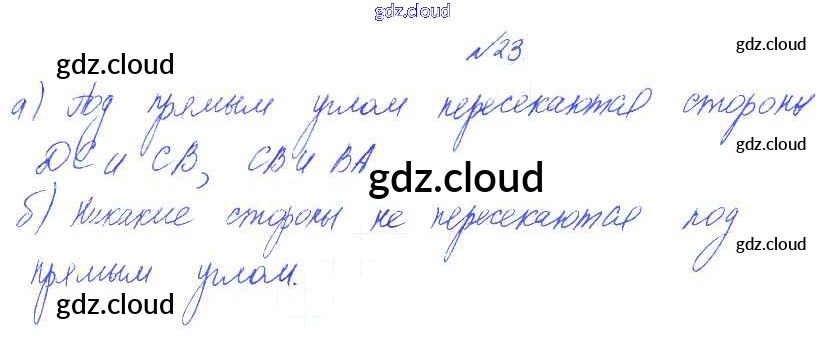 gdz.cloud
№23.
gdz.cloud
gdz.cloud
а) Под прямым углом пересекаются стороны
gdz.cloud
DC и CB, CB и BA
gdz.cloud
б) Никакие стороны не пересекаются под
gdz.cloud
прямым углом.
gdz.cloud